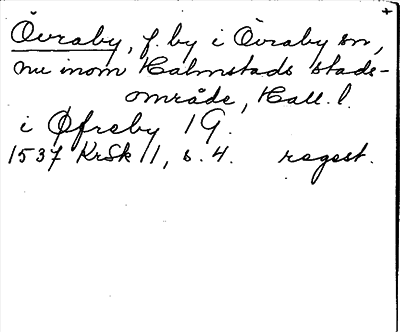 Övraby, f. by i Övraby sn,
nu inom Halmstads stads-
område, Hall. l.
i Øfreby 1 G.
1537 KrSk 11, s. 4. regest.